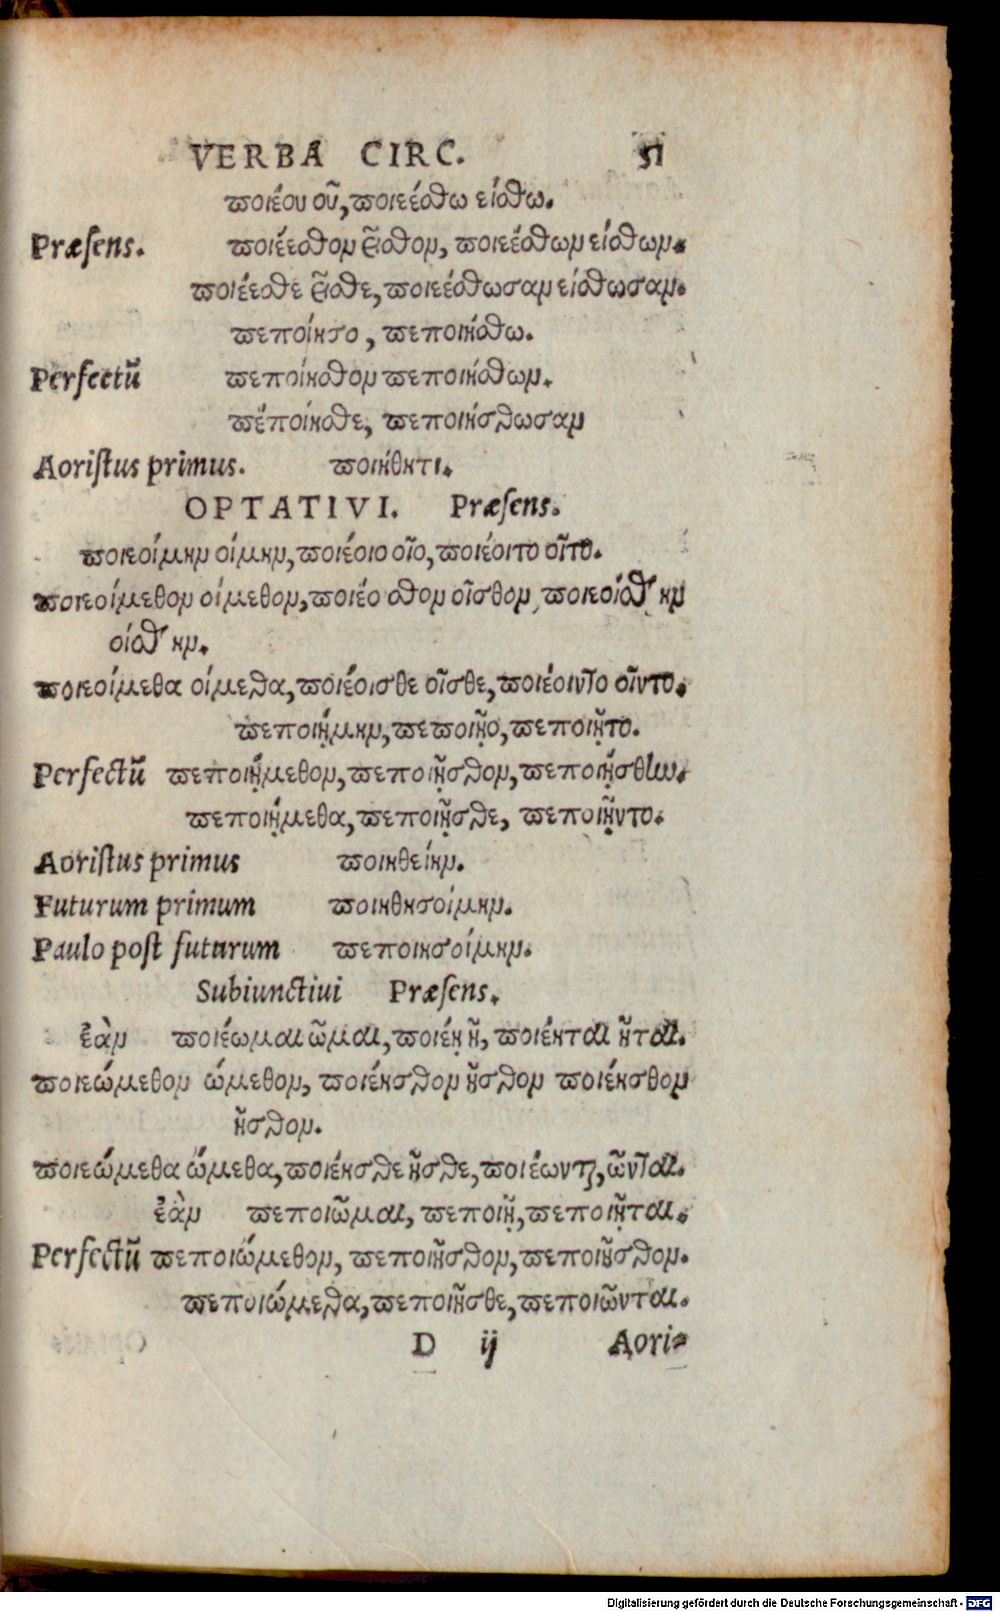 VERBA CIRC. 51
ποιέου οῦ, ποιεέσθω είσθω.
Præsens. ποιέεσθον εῖσθον, ποιεέσθων είσθων.
ποιέεσθε εῖσθε, ποιεέσθωσαν είσθωσαν.
πεποίησο, πεποιήσθω.
Perfectũ πεποίησθον πεποιήσθων.
πεποίησθε, πεποιήσθωσαν
Aoristus primus. ποιήθητι.
OPTATIVI. Præsens.
ποιεοίμην οίμην, ποιέοιο οῖο, ποιέοιτο οῖτο.
ποιεοίμεθον οίμεθον, ποιέο σθον οῖσθον, ποιεοίσθην
οίσθην.
ποιεοίμεθα οίμεθα, ποιέοισθε οῖσθε, ποιέοιντο οῖντο.
πεποιῄμην, πεποιῇο, πεποιῇτο.
Perfectũ πεποιῄμεθον, πεποιῇσθον, πεποιῄσθω.
πεποιῄμεθα, πεποιῇσθε, πεποιῇντο.
Aoristus primus ποιηθείην.
Futurum primum ποιηθησοίμην.
Paulo post futurum πεποιησοίμην.
Subiunctiui Præsens.
ἐὰν ποιέωμαι ῶμαι, ποιέῃ ῇ, ποιέηται ῆται.
ποιεώμεθον ώμεθον, ποιέησθον ῆσθον ποιέησθον
ῆσθον.
ποιεώμεθα ώμεθα, ποιέησθε ῆσθε, ποιέωνται, ῶνται.
ἐὰν πεποιῶμαι, πεποιῇ, πεποιῆται.
Perfectũ πεποιώμεθον, πεποιῆσθον, πεποιῆσθον.
πεποιώμεθα, πεποιῆσθε, πεποιῶνται.
D ij Aori⸗
Digitalisierung gefördert durch die Deutsche Forschungsgemeinschaft - DFG